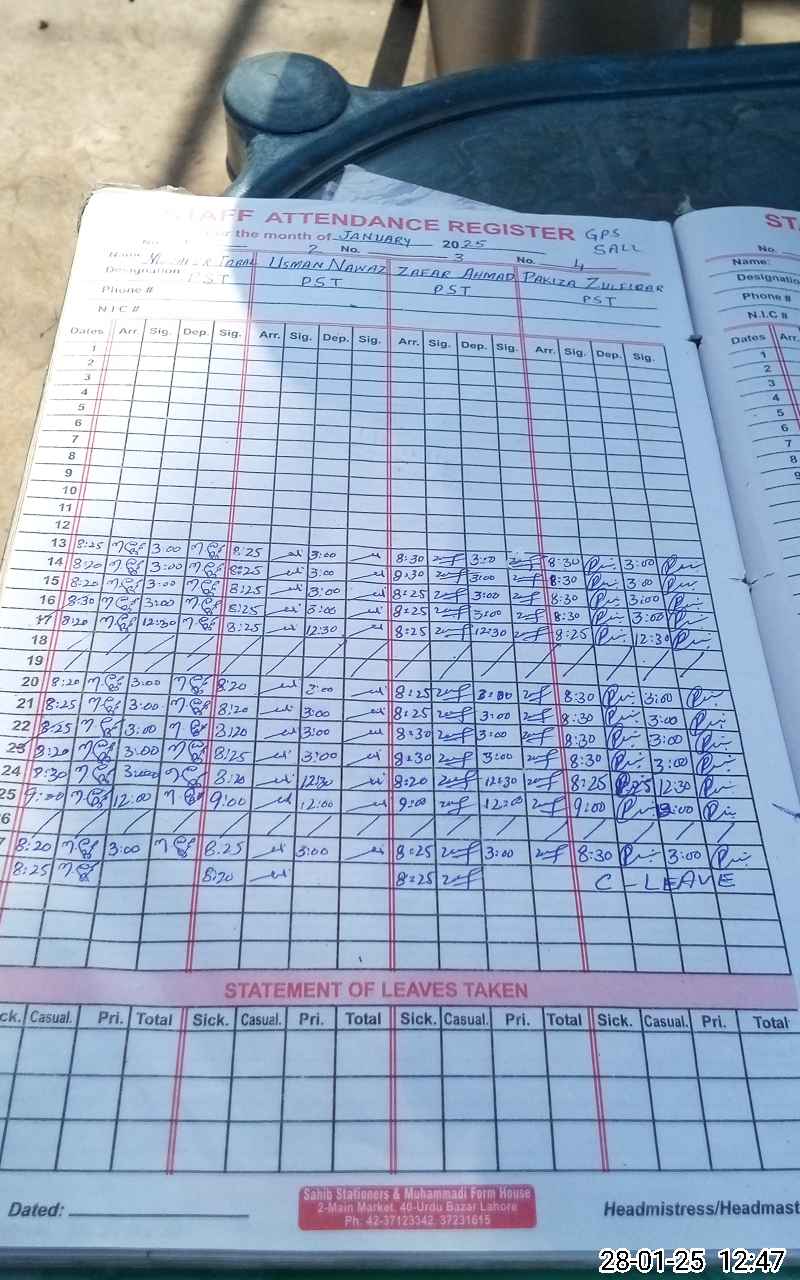 STAFF ATTENDANCE REGISTER GPS
For the month of JANUARY 2025 SALL
No. 2 No. 3 No. 4
Name IQBAL USMAN NAWAZ ZAFAR AHMAD PAKIZA ZULFIQAR
Designation PST PST PST PST
Phone #
N.I.C #
Dates Arr. Sig. Dep. Sig. Arr. Sig. Dep. Sig. Arr. Sig. Dep. Sig. Arr. Sig. Dep. Sig.
1
2
3
4
5
6
7
8
9
10
11
12
13 8:25 3:00 8:25 3:00 8:30 3:00 8:30 3:00
14 8:20 3:00 8:25 3:00 8:30 3:00 8:30 3:00
15 8:20 3:00 8:25 3:00 8:25 3:00 8:30 3:00
16 8:30 3:00 8:25 3:00 8:25 3:00 8:30 3:00
17 8:20 12:30 8:25 12:30 8:25 12:30 8:25 12:30
18
19
20 8:20 3:00 8:20 3:00 8:25 3:00 8:30 3:00
21 8:25 3:00 8:20 3:00 8:25 3:00 8:30 3:00
22 8:25 3:00 8:20 3:00 8:30 3:00 8:30 3:00
23 8:20 3:00 8:25 3:00 8:30 3:00 8:30 3:00
24 8:30 3:00 8:20 12:30 8:20 12:30 8:25 12:30
25 9:00 12:00 9:00 12:00 9:00 12:00 9:00
26
7 8:20 3:00 8:25 3:00 8:25 3:00 8:30 3:00
8:25 8:20 8:25 C-LEAVE
STATEMENT OF LEAVES TAKEN
ck. Casual. Pri. Total Sick. Casual. Pri. Total Sick. Casual. Pri. Total Sick. Casual. Pri. Total
Dated:
Sahib Stationers & Muhammadi Form House
2-Main Market, 40-Urdu Bazar Lahore
Ph: 42-37123342, 37231615
Headmistress/Headmast
STA
No.
Name:
Designatio
Phone #
N.I.C #
Dates Arr.
1
2
3
4
5
6
7
8
9
28-01-25 12:47